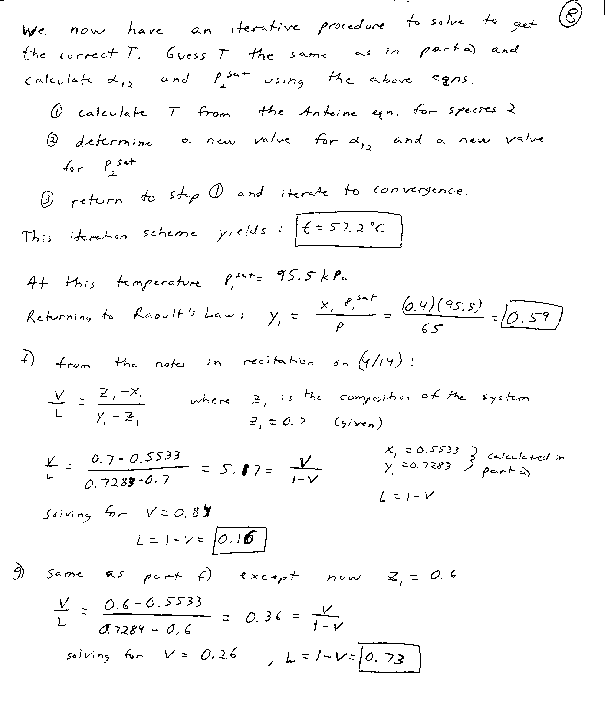 8
We now have an iterative procedure to solve to get
the correct T. Guess T the same as in part a) and
calculate α12 and P2^sat using the above eqns.
① calculate T from the Antoine eqn. for species 2
② determine a new value for α12 and a new value
for P2^sat
③ return to step ① and iterate to convergence.
This iteration scheme yields: t = 57.2°C
At this temperature P1^sat = 95.5 kPa
Returning to Raoult's Law: y1 = x1 P1^sat / P = (0.4)(95.5) / 65 = 0.59
f) from the notes in recitation on (4/14):
V/L = (z1 - x1) / (y1 - z1) where z1 is the composition of the system
z1 = 0.7 (given)
V/L = (0.7 - 0.5533) / (0.7283 - 0.7) = 5.17 = V / (1-V)
x1 = 0.5533 } calculated in
y1 = 0.7283 } part a)
L = 1-V
solving for V = 0.84
L = 1-V = 0.16
g) same as part f) except now z1 = 0.6
V/L = (0.6 - 0.5533) / (0.7284 - 0.6) = 0.36 = V / (1-V)
solving for V = 0.26, L = 1-V = 0.73